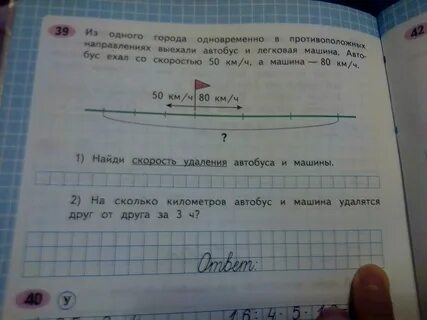 39 Из одного города одновременно в противоположных
направлениях выехали автобус и легковая машина. Авто-
бус ехал со скоростью 50 км/ч, а машина — 80 км/ч.
50 км/ч 80 км/ч
?
1) Найди скорость удаления автобуса и машины.
2) На сколько километров автобус и машина удалятся
друг от друга за 3 ч?
Ответ:
40 У
42